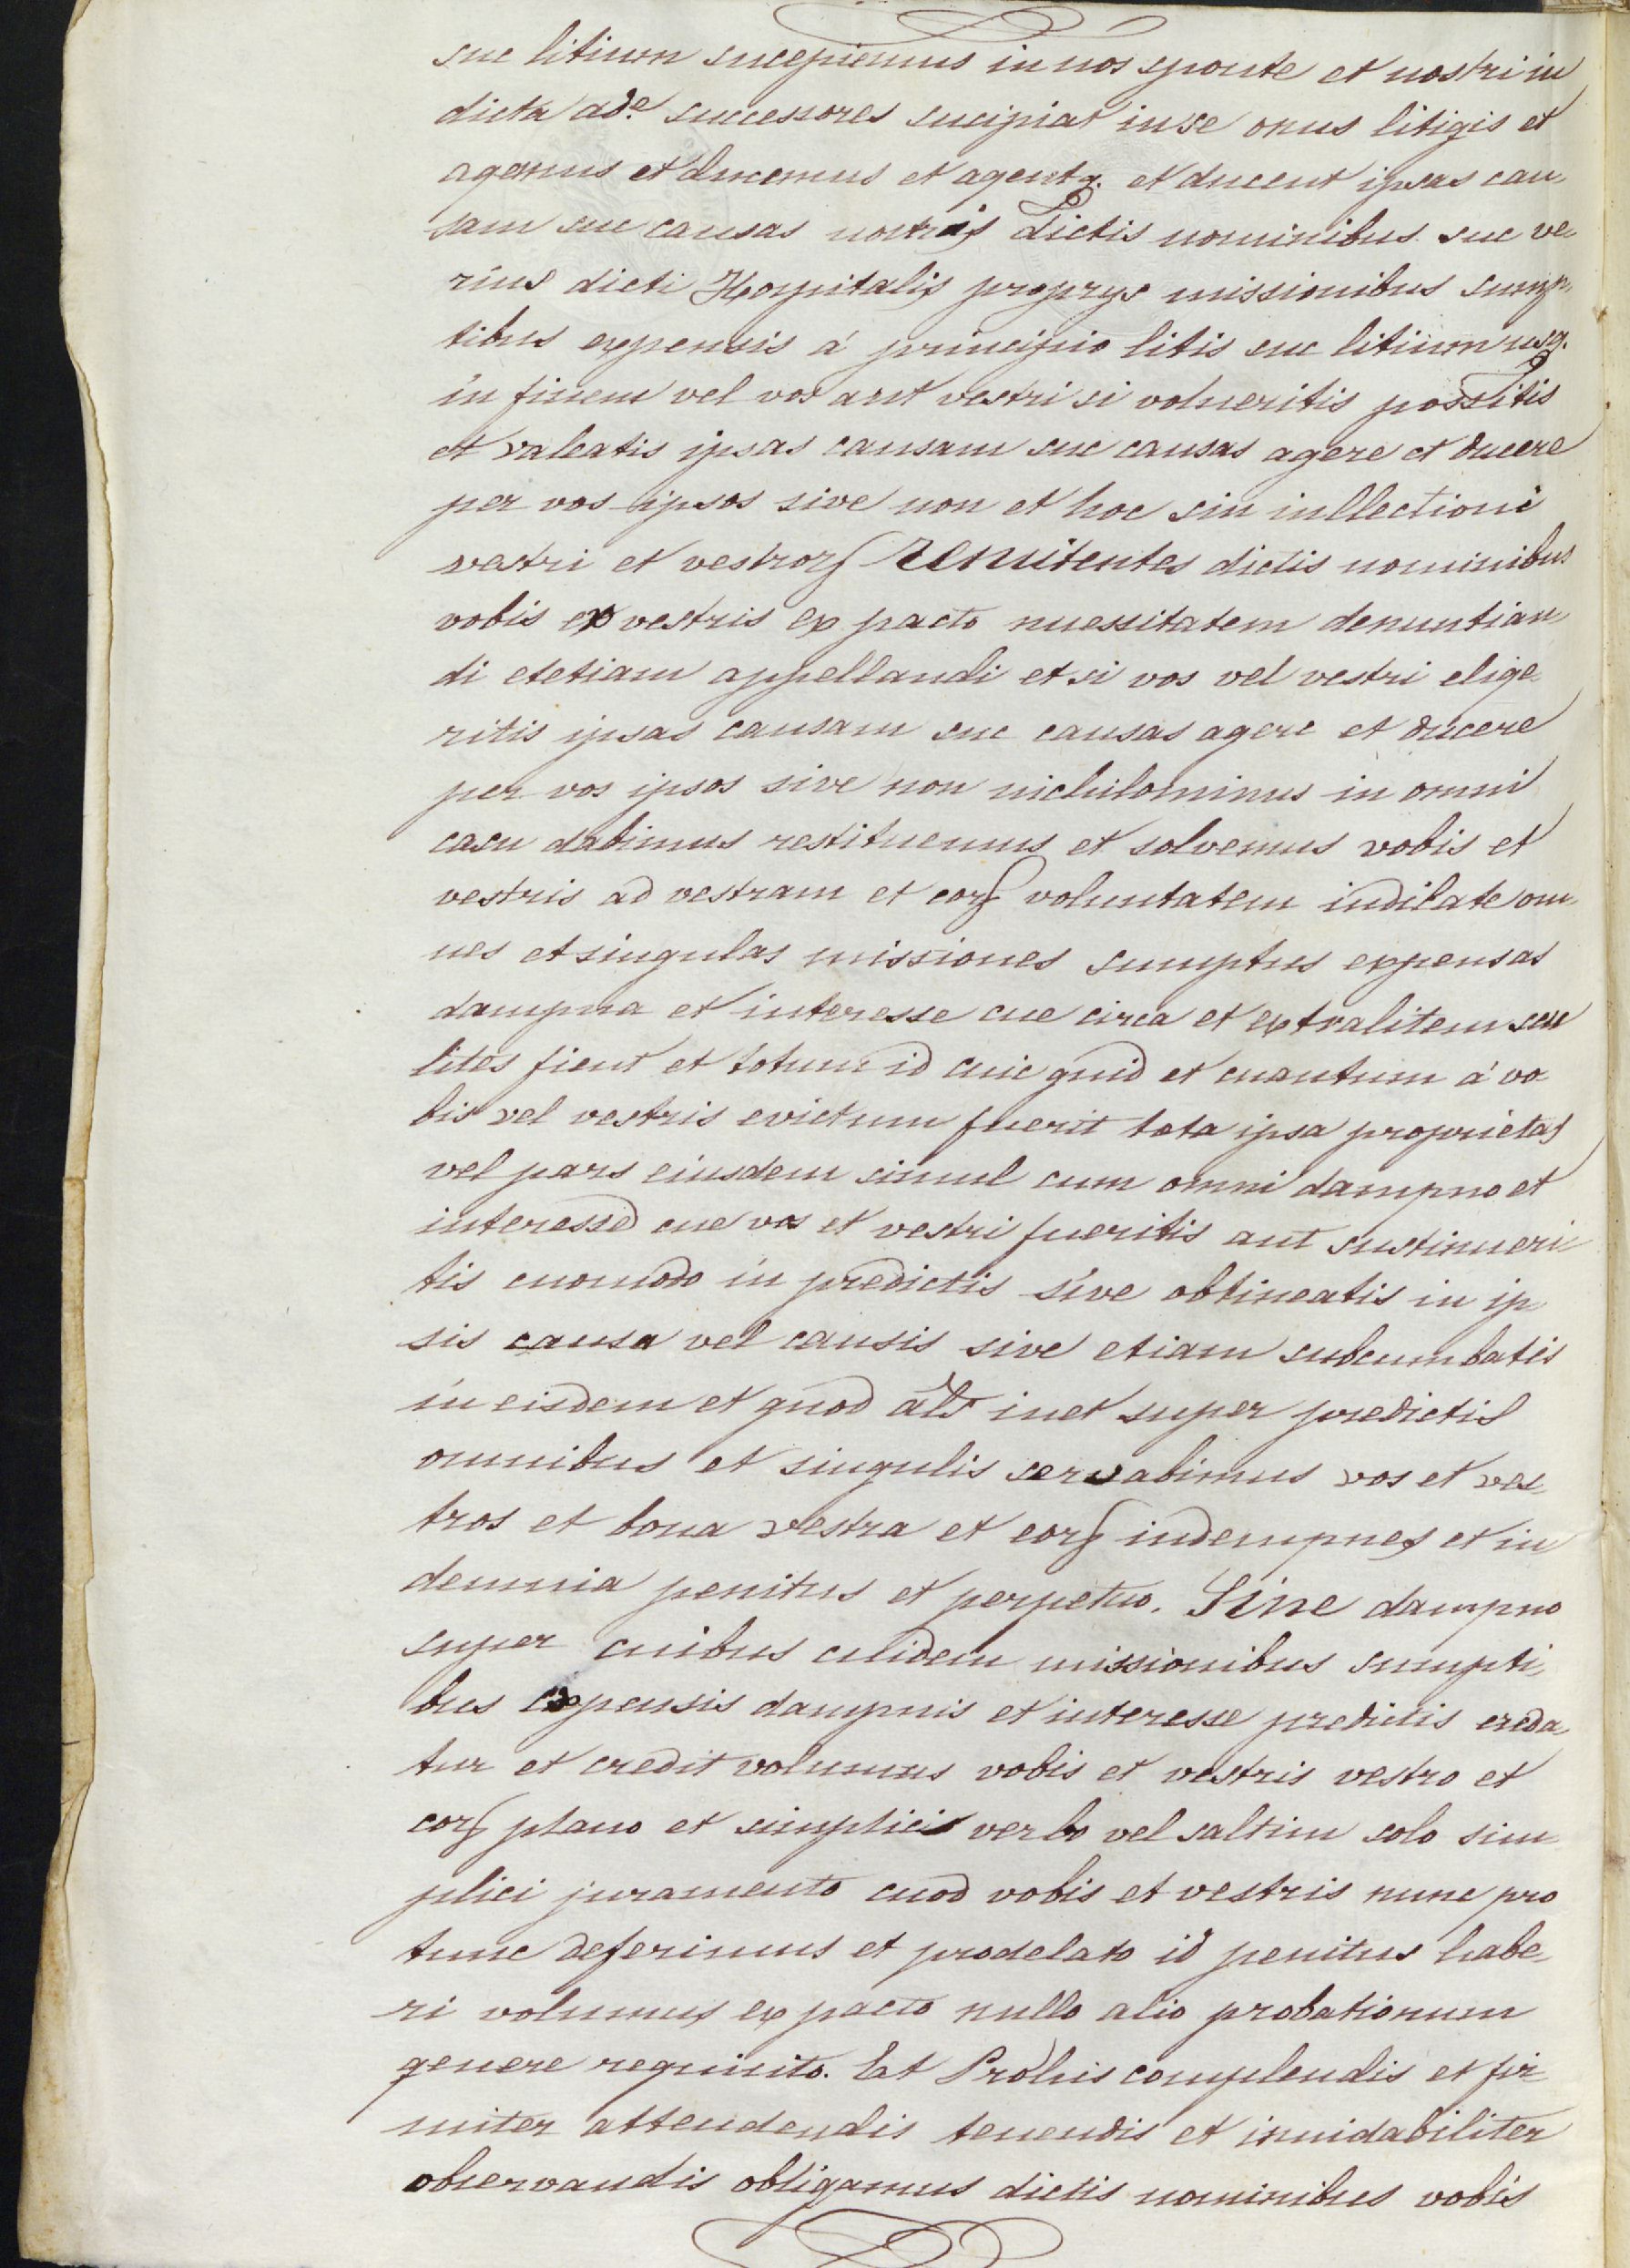 suc litium sucepiemus in nos sponte et nostri in
dicta ad.e successores sucipiat in se onus litigis et
agemus et ducemus et agentq. et ducent ipsas cau
sam suc causas nostris dictis nominibus suc ve
rius dicti Hospitalis proprys missionibus sump
tibus expensis á principio litis suc litium usq.
in finem vel vos aut vestri si volueritis possitis
et valeatis ipsas causam suc causas agere et ducere
per vos ipsos sive non et hoc sin inllectione
vestri et vestrorf remitentes dictis nominibus
vobis ex vestris ex pacto nuessitatem denuntian
di etetiam appellandi et si vos vel vestri elige
ritis ipsas causam suc causas agere et ducere
per vos ipsos sive non nichilominus in omni
casu dabimus restituemus et solvemus vobis et
vestris ad vestram et eorf voluntatem indilate om
nes et singulas missiones sumptus expensas
dampna et interesse cue circa et extralitem seu
lites fient et totum id cuic quid et cuantum á vo
bis vel vestris evictum fuerit tota ipsa proprietas
vel pars eiusdem simul cum omni dampno et
interesse cue vos et vestri fueritis aut sustinueri
tis cuomodo in predictis sive obtineatis in ip
sis causa vel causis sive etiam subcumbatis
in eisdem et quod alt inet super predictis
omnibus et singulis servabimus vos et ves
tros et bona vestra et eorf indempnes et in
demnia penitus et perpetuo. Sine dampno
super cuibus cuidem missionibus sumpti
bus expensis dampnis et interesse predictis creda
tur et credit volumus vobis et vestris vestro et
eorf plano et simplicis verbo vel saltim solo sim
plici juramento cuod vobis et vestris nunc pro
tunc deferimus et prodelato id penitus habe
ri volumus ex pacto nullo alio probationum
genere requisito. Et Prohis complendis et fir
miter attendendis tenendis et inuidabiliter
observandis obligamus dictis nominibus vobis